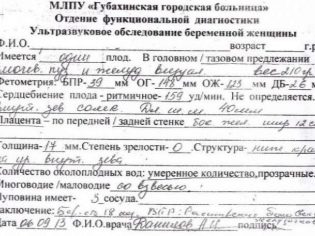 МЛПУ «Губахинская городская больница»
Отдение функциональной диагностики
Ультразвуковое обследование беременной женщины
Ф.И.О. возраст г.р
Имеется один плод. В головном / тазовом предлежании
и желуд визуал. вес 210 гр
Фетометрия: БПР-39 мм ОГ-148 мм ОЖ-123 мм ДБ-26 м
Сердцебиение плода - ритмичное-159 уд/мин. Не определяется.
внутр. зев сомк. 40 мм
Плацента – по передней / задней стенке бок
Толщина-17 мм.Степень зрелости-0 Структура- ниж край
внутр. зева
Количество околоплодных вод: умеренное количество,прозрачные.
Многоводие /маловодие со взвесью.
Пуповина имеет- 3 сосуда.
Заключение: Бер-ть 18 нед. ВПР:
Дата 06 09 13 Ф.И.О.врача Данилов А.И. подпись